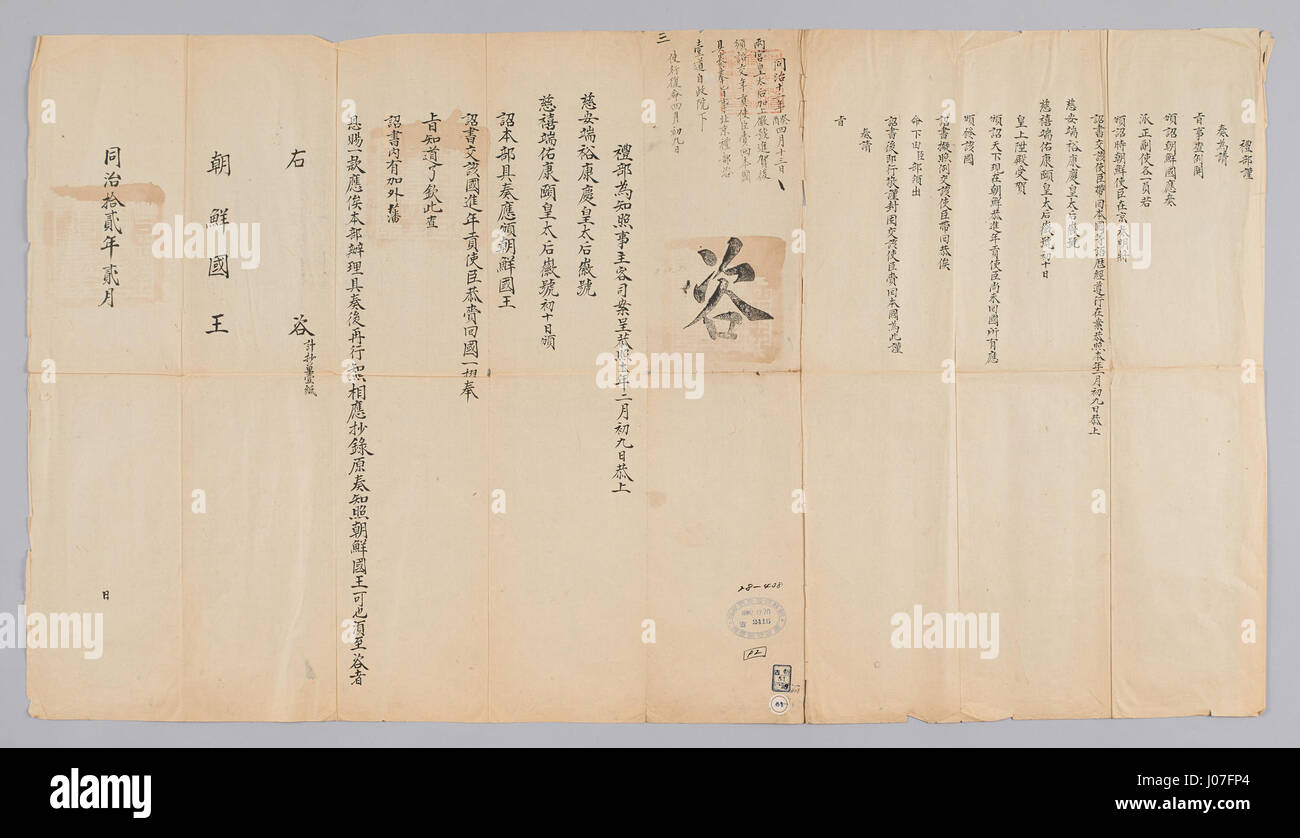 禮部謹
奏為請
旨事查例開
頒詔朝鮮國應奏
派正副使各一員若
頒詔時朝鮮使臣在京奏明將
詔書交該使臣帶回本國等語歷經遵行在案恭照本年二月初九日恭上
慈安端裕康慶皇太后徽號
慈禧端佑康頤皇太后徽號初十日
皇上陞殿受賀
頒詔天下現在朝鮮恭進年貢使臣尚未回國所有應
頒發該國
詔書擬照例交該使臣帶回恭俟
命下由臣部領出
詔書後即行敬謹封固交該使臣賫回本國為此謹
奏請
旨
同治十二年癸酉四月十三日
兩宮皇太后加上徽號進賀後
頒詔交年貢使臣賫回本國
具奏奉旨事北京禮部咨
壹道自政院下
使行復命四月初九日
三
咨
禮部為知照事主客司案呈恭照十二年二月初九日恭上
慈安端裕康慶皇太后徽號
慈禧端佑康頤皇太后徽號初十日頒
詔本部具奏應頒朝鮮國王
詔書交該國進年貢使臣恭賫回國一摺奉
旨知道了欽此查
詔書內有加外藩
恩賜一款應俟本部辦理具奏後再行知照相應抄錄原奏知照朝鮮國王可也須至咨者
右咨 計抄單壹紙
朝鮮國王
同治拾貳年貳月 日
28-408
2116
P2
64
alamy
Image ID: J07FP4
www.alamy.com